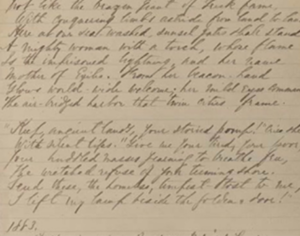 Not like the brazen giant of Greek fame,
With conquering limbs astride from land to land;
Here at our sea-washed, sunset gates shall stand
A mighty woman with a torch, whose flame
Is the imprisoned lightning, and her name
Mother of Exiles. From her beacon-hand
Glows world-wide welcome; her mild eyes command
The air-bridged harbor that twin cities frame.
"Keep, ancient lands, your storied pomp!" cries she
With silent lips. "Give me your tired, your poor,
Your huddled masses yearning to breathe free,
The wretched refuse of your teeming shore.
Send these, the homeless, tempest-tost to me,
I lift my lamp beside the golden door!"
1883.